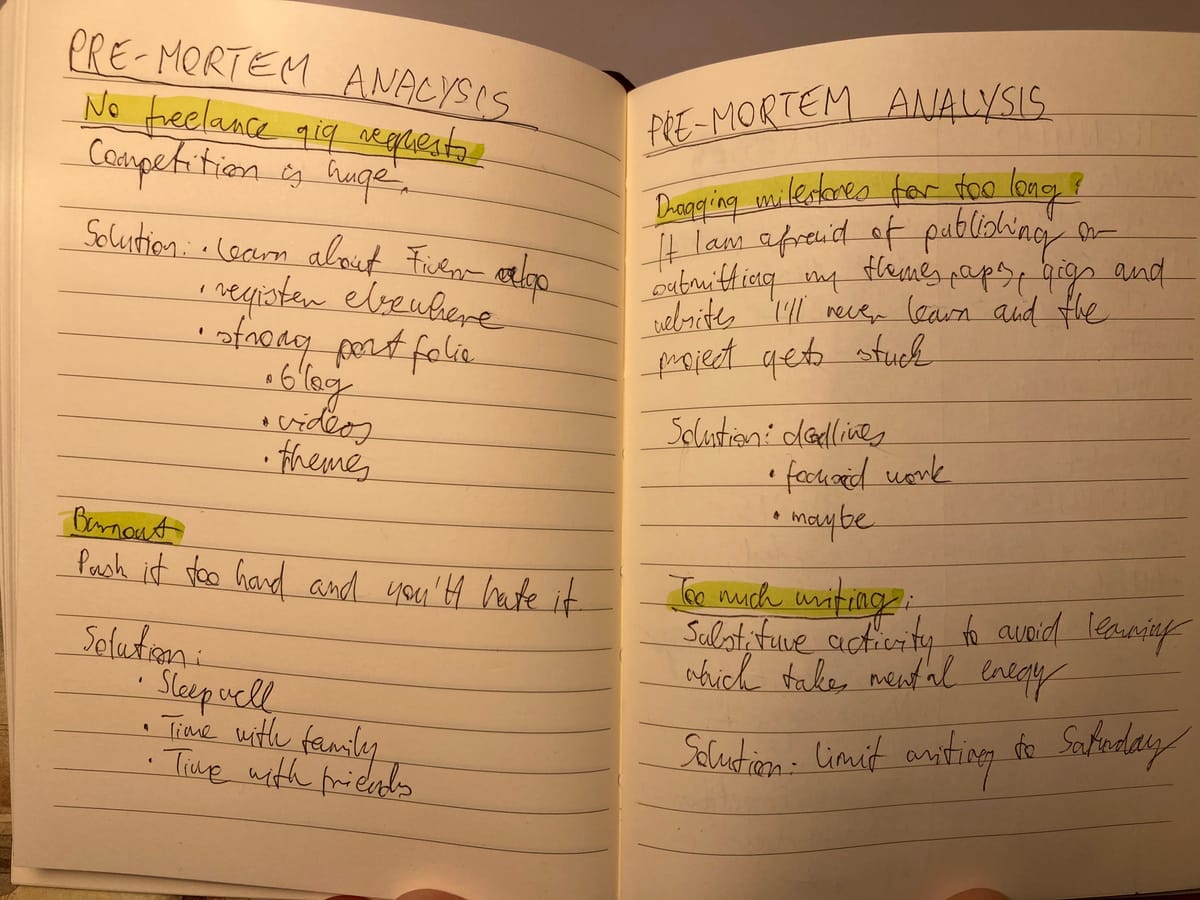 PRE-MORTEM ANALYSIS
No freelance gig requests
Competition is huge.
Solution: • learn about Fiverr algo
• register elsewhere
• strong portfolio
• blog
• videos
• themes
Burnout
Push it too hard and you'll hate it
Solution:
• Sleep well
• Time with family
• Time with friends
PRE-MORTEM ANALYSIS
Dragging milestones for too long:
If I am afraid of publishing or
submitting my themes, apps, gigs and
websites I'll never learn and the
project gets stuck
Solution: deadlines
• focused work
• maybe
Too much writing:
Substitute activity to avoid learning
which takes mental enegy
Solution: limit writing to Saturday